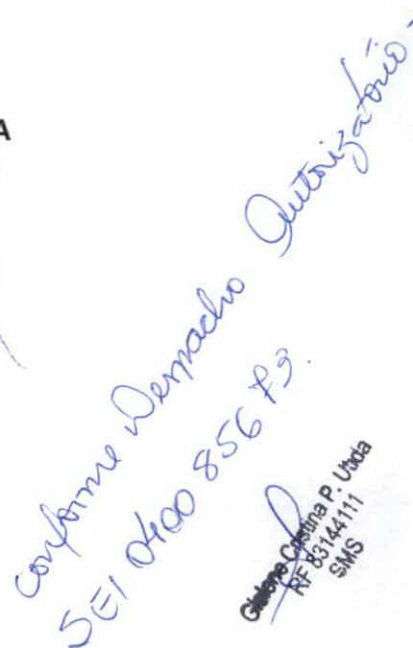 A
conforme Despacho Autorizatório.
SEI 0400 856 P3.
Cristina P. Utida
RF 83144111
SMS